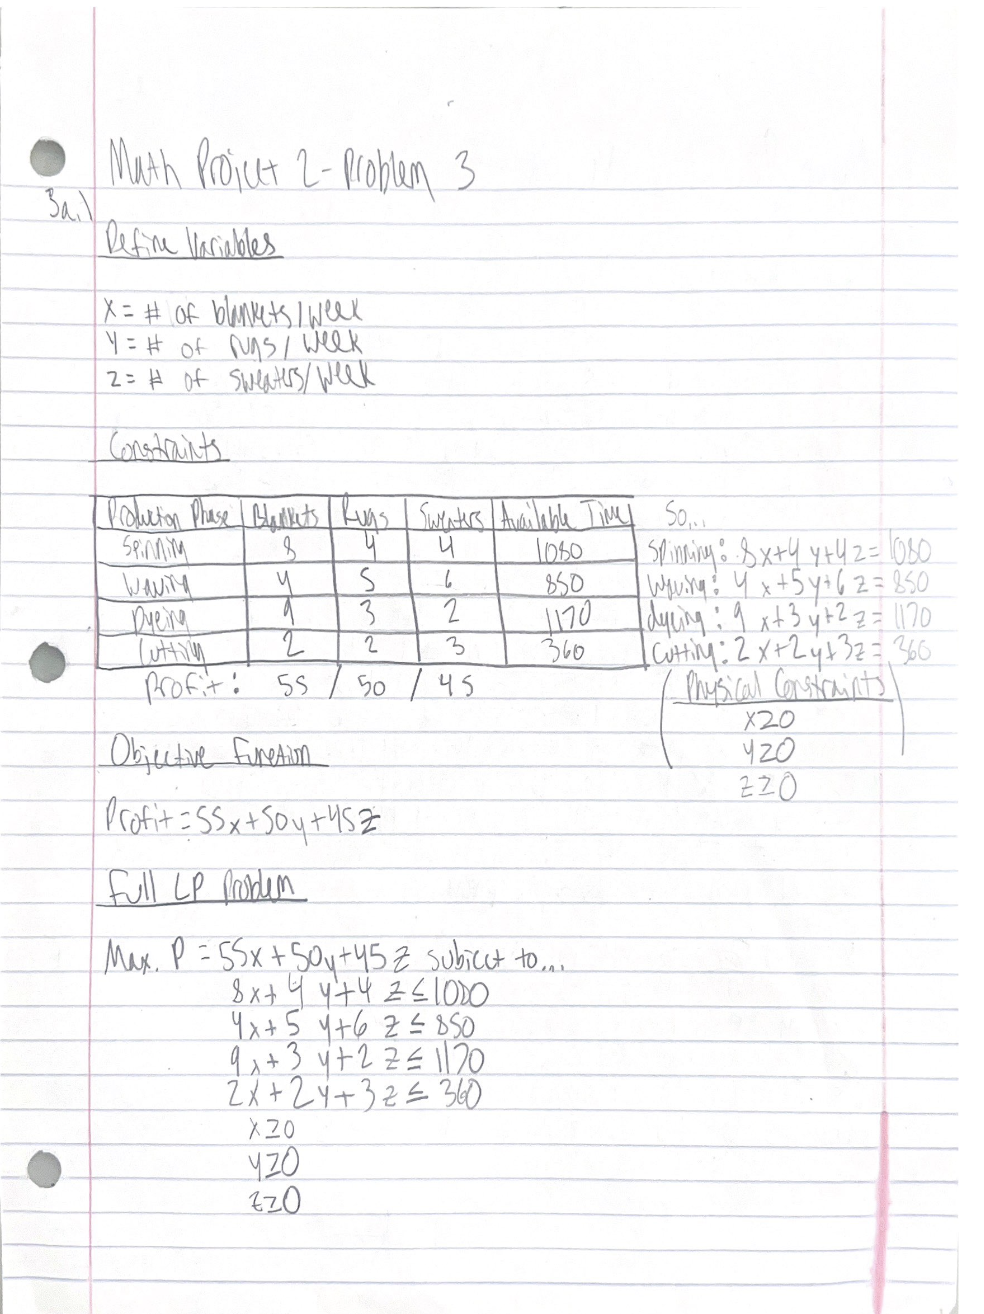 Math Project 2 - Problem 3
3a.)
Define Variables
X = # of blankets/week
Y = # of rugs/week
Z = # of sweaters/week
Constraints
Production Phase | Blankets | Rugs | Sweaters | Available Time
Spinning 8 4 4 1080
Weaving 4 5 6 850
Dyeing 9 3 2 1170
Cutting 2 2 3 360
Profit: 55 / 50 / 45
So...
Spinning: 8x+4y+4z=1080
Weaving: 4x+5y+6z=850
dyeing: 9x+3y+2z=1170
Cutting: 2x+2y+3z=360
Physical Constraints
x≥0
y≥0
z≥0
Objective Function
Profit=55x+50y+45z
Full LP Problem
Max. P=55x+50y+45z subject to...
8x+4y+4z≤1080
4x+5y+6z≤850
9x+3y+2z≤1170
2x+2y+3z≤360
x≥0
y≥0
z≥0